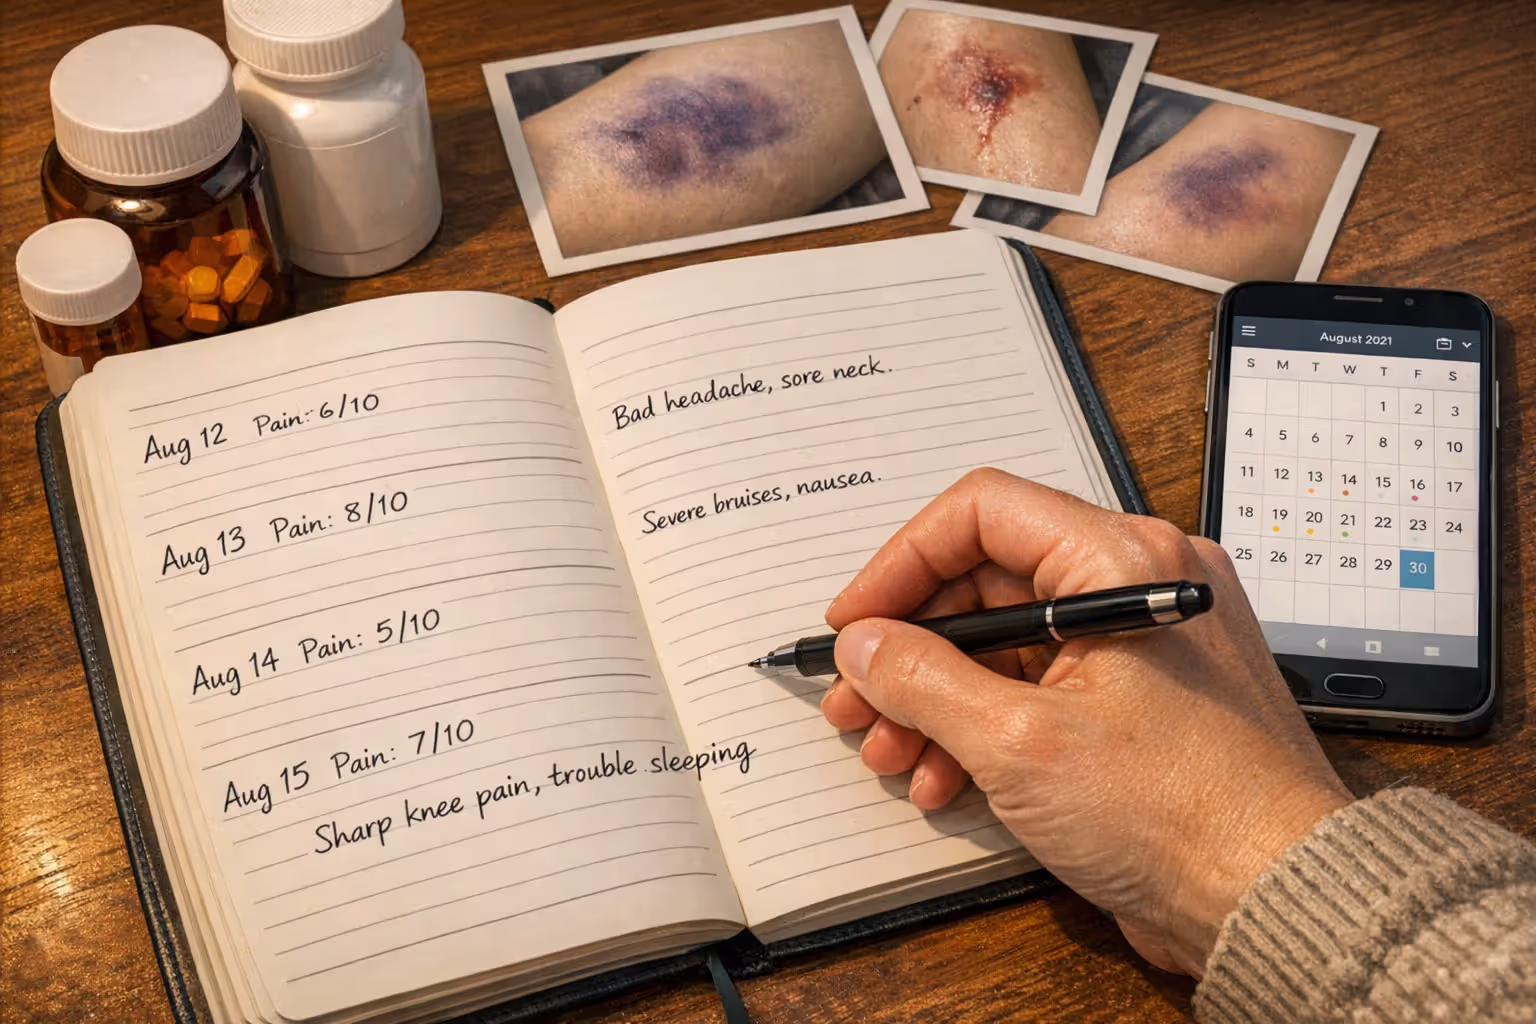 Aug 12 Pain: 6/10
Aug 13 Pain: 8/10
Aug 14 Pain: 5/10
Aug 15 Pain: 7/10
Sharp knee pain, trouble sleeping
Bad headache, sore neck.
Severe bruises, nausea.
August 2021
S M T W T F S
1 2 3
4 5 6 7 8 9 10
11 12 13 14 15 16 17
18 19 20 21 22 23 24
25 26 27 28 29 30